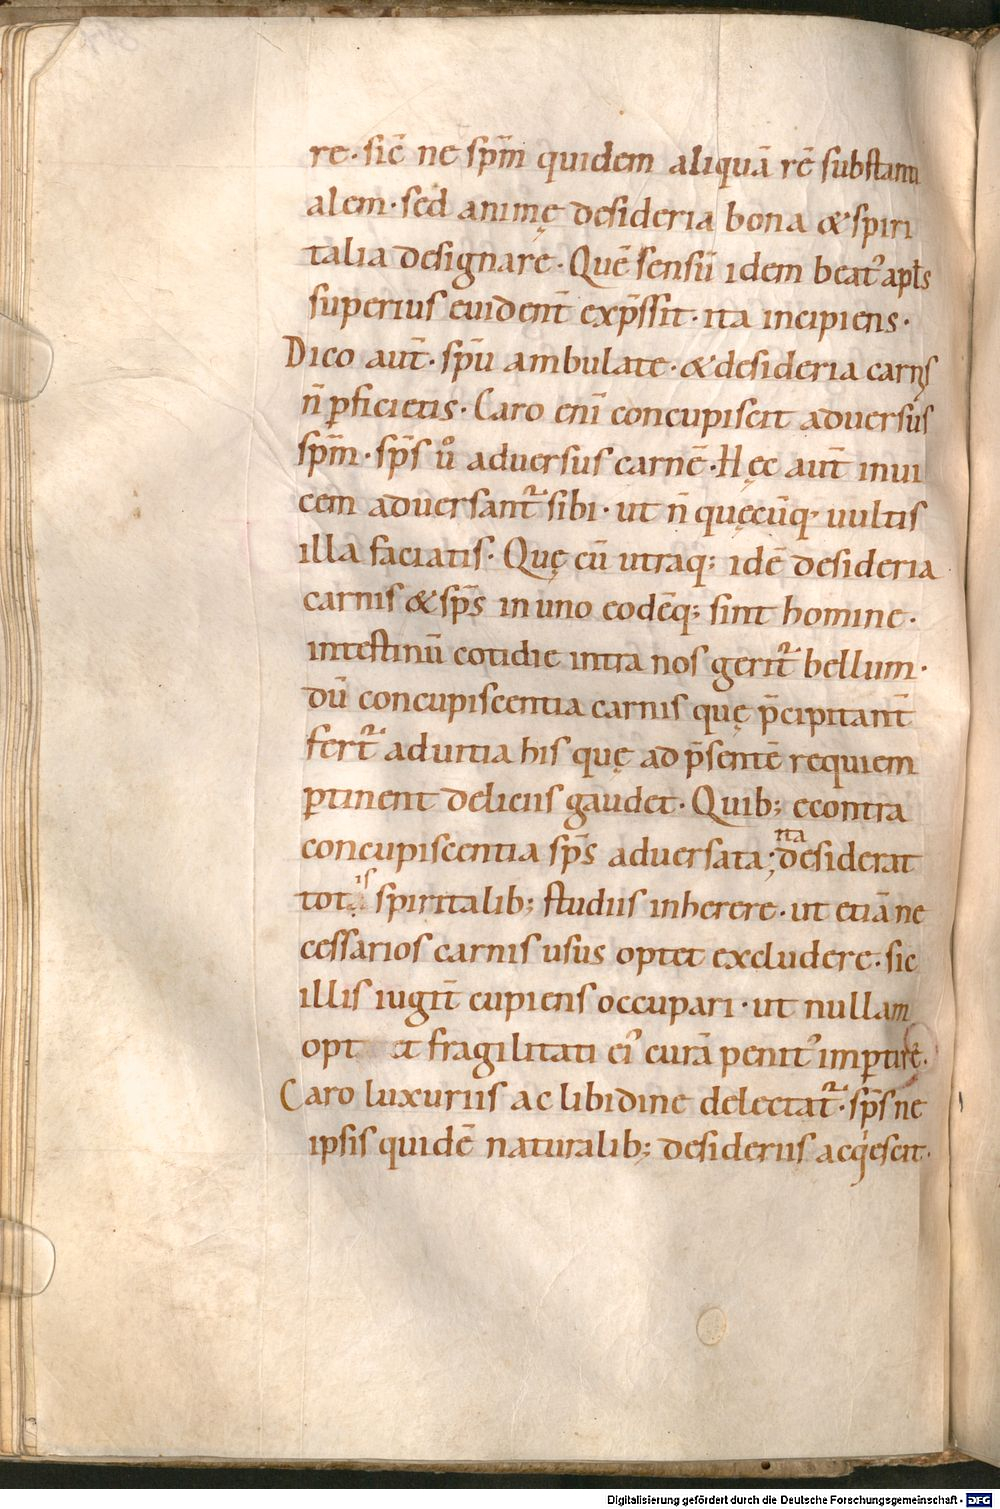 re· sic̄ ne sp̄m quidem aliquā rē substanti
alem· sed animę desideria bona & spiri
talia designare· Quē sensū idem beat᾽ apl̄s
superius euident̄ exp̄ssit· ita incipiens·
Dico aut̄· sp̄u ambulate· & desideria carnis
n̄ ꝑficietis· Caro enī concupiscit aduersus
sp̄m· sp̄s uͦ aduersus carnē· Hęc aut̄ inui
cem aduersant᷑ sibi· ut n̄ quęcūq; uultis
illa faciatis· Quę cū utraq; idē desideria
carnis & sp̄s in uno eodēq; sint homine·
intestinū cotidie intra nos gerit᷑ bellum·
dū concupiscentia carnis quę p̄cipitant̄
fert᷑ ad uitia his quę ad p̄sentē requiem
ꝑtinent deliciis gaudet· Quib; econtra
concupiscentia sp̄s aduersata; ita desiderat
totis spiritalib; studiis inherere· ut etiā ne
cessarios carnis usus optet excludere· sic
illis iugit̄ cupiens occupari· ut nullam
opt et fragilitati ei᾽ curā penit᾽ imꝑtire·
Caro luxuriis ac libidine delectat᷑· sp̄s ne
ipsis quidē naturalib; desideriis acq̇escit·
Digitalisierung gefördert durch die Deutsche Forschungsgemeinschaft - DFG